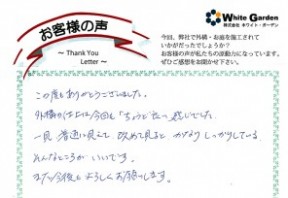 お客様の声
～ Thank You
Letter ～
White Garden
株式会社 ホワイト・ガーデン
今回、弊社で外構・お庭を施工されて
いかがだったでしょうか？
お客様の声が私たちの原動力になっています。
ぜひご感想をお聞かせ下さい。
この度もありがとうございました。
外構の仕上は今回も「ちょうど良い」感じでした。
一見 普通に見えて 改めて見ると かなり しっかりしている
そんなところが いいです。
また 今後とも よろしくお願いします。